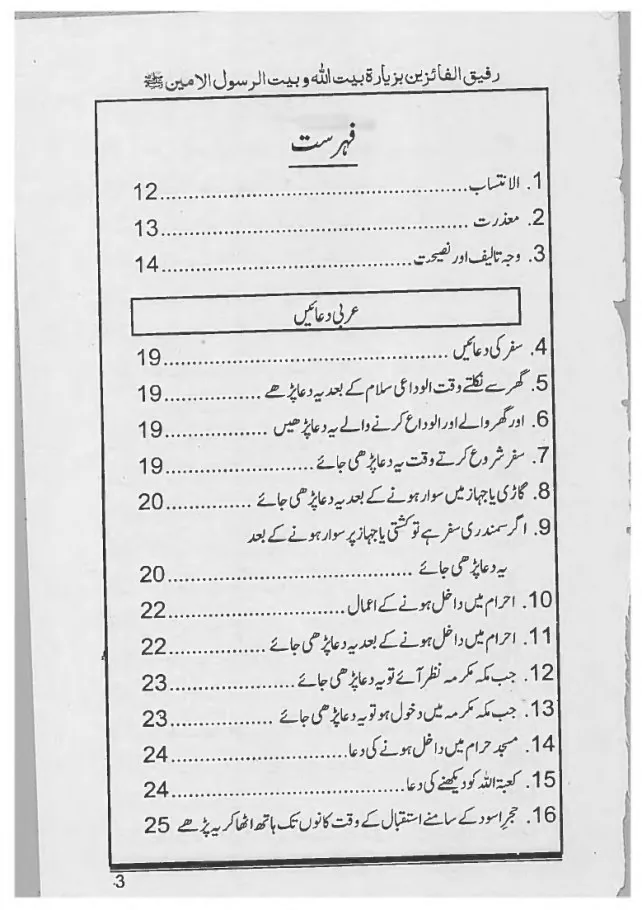 رفیق الفائزین بزیارۃ بیت اللہ و بیت الرسول الامین ﷺ
فہرست
1. الانتساب............................................12
2. معذرت ............................................13
3. وجہ تالیف اور نصیحت....................................14
عربی دعائیں
4. سفر کی دعائیں ........................................19
5. گھر سے نکلتے وقت الوداعی سلام کے بعد یہ دعا پڑھے ..............19
6. اور گھر والے اور الوداع کرنے والے یہ دعا پڑھیں ..............19
7. سفر شروع کرتے وقت یہ دعا پڑھی جائے ....................19
8. گاڑی یا جہاز میں سوار ہونے کے بعد یہ دعا پڑھی جائے ............20
9. اگر سمندری سفر ہے تو کشتی یا جہاز پر سوار ہونے کے بعد
یہ دعا پڑھی جائے ..................................20
10. احرام میں داخل ہونے کے اعمال .........................22
11. احرام میں داخل ہونے کے بعد یہ دعا پڑھی جائے ..............22
12. جب مکہ مکرمہ نظر آئے تو یہ دعا پڑھی جائے ..................23
13. جب مکہ مکرمہ میں دخول ہو تو یہ دعا پڑھی جائے ..............23
14. مسجد حرام میں داخل ہونے کی دعا.........................24
15. کعبۃ اللہ کو دیکھنے کی دعا.................................24
16. حجرِ اسود کے سامنے استقبال کے وقت کانوں تک ہاتھ اٹھا کر یہ پڑھے 25
3